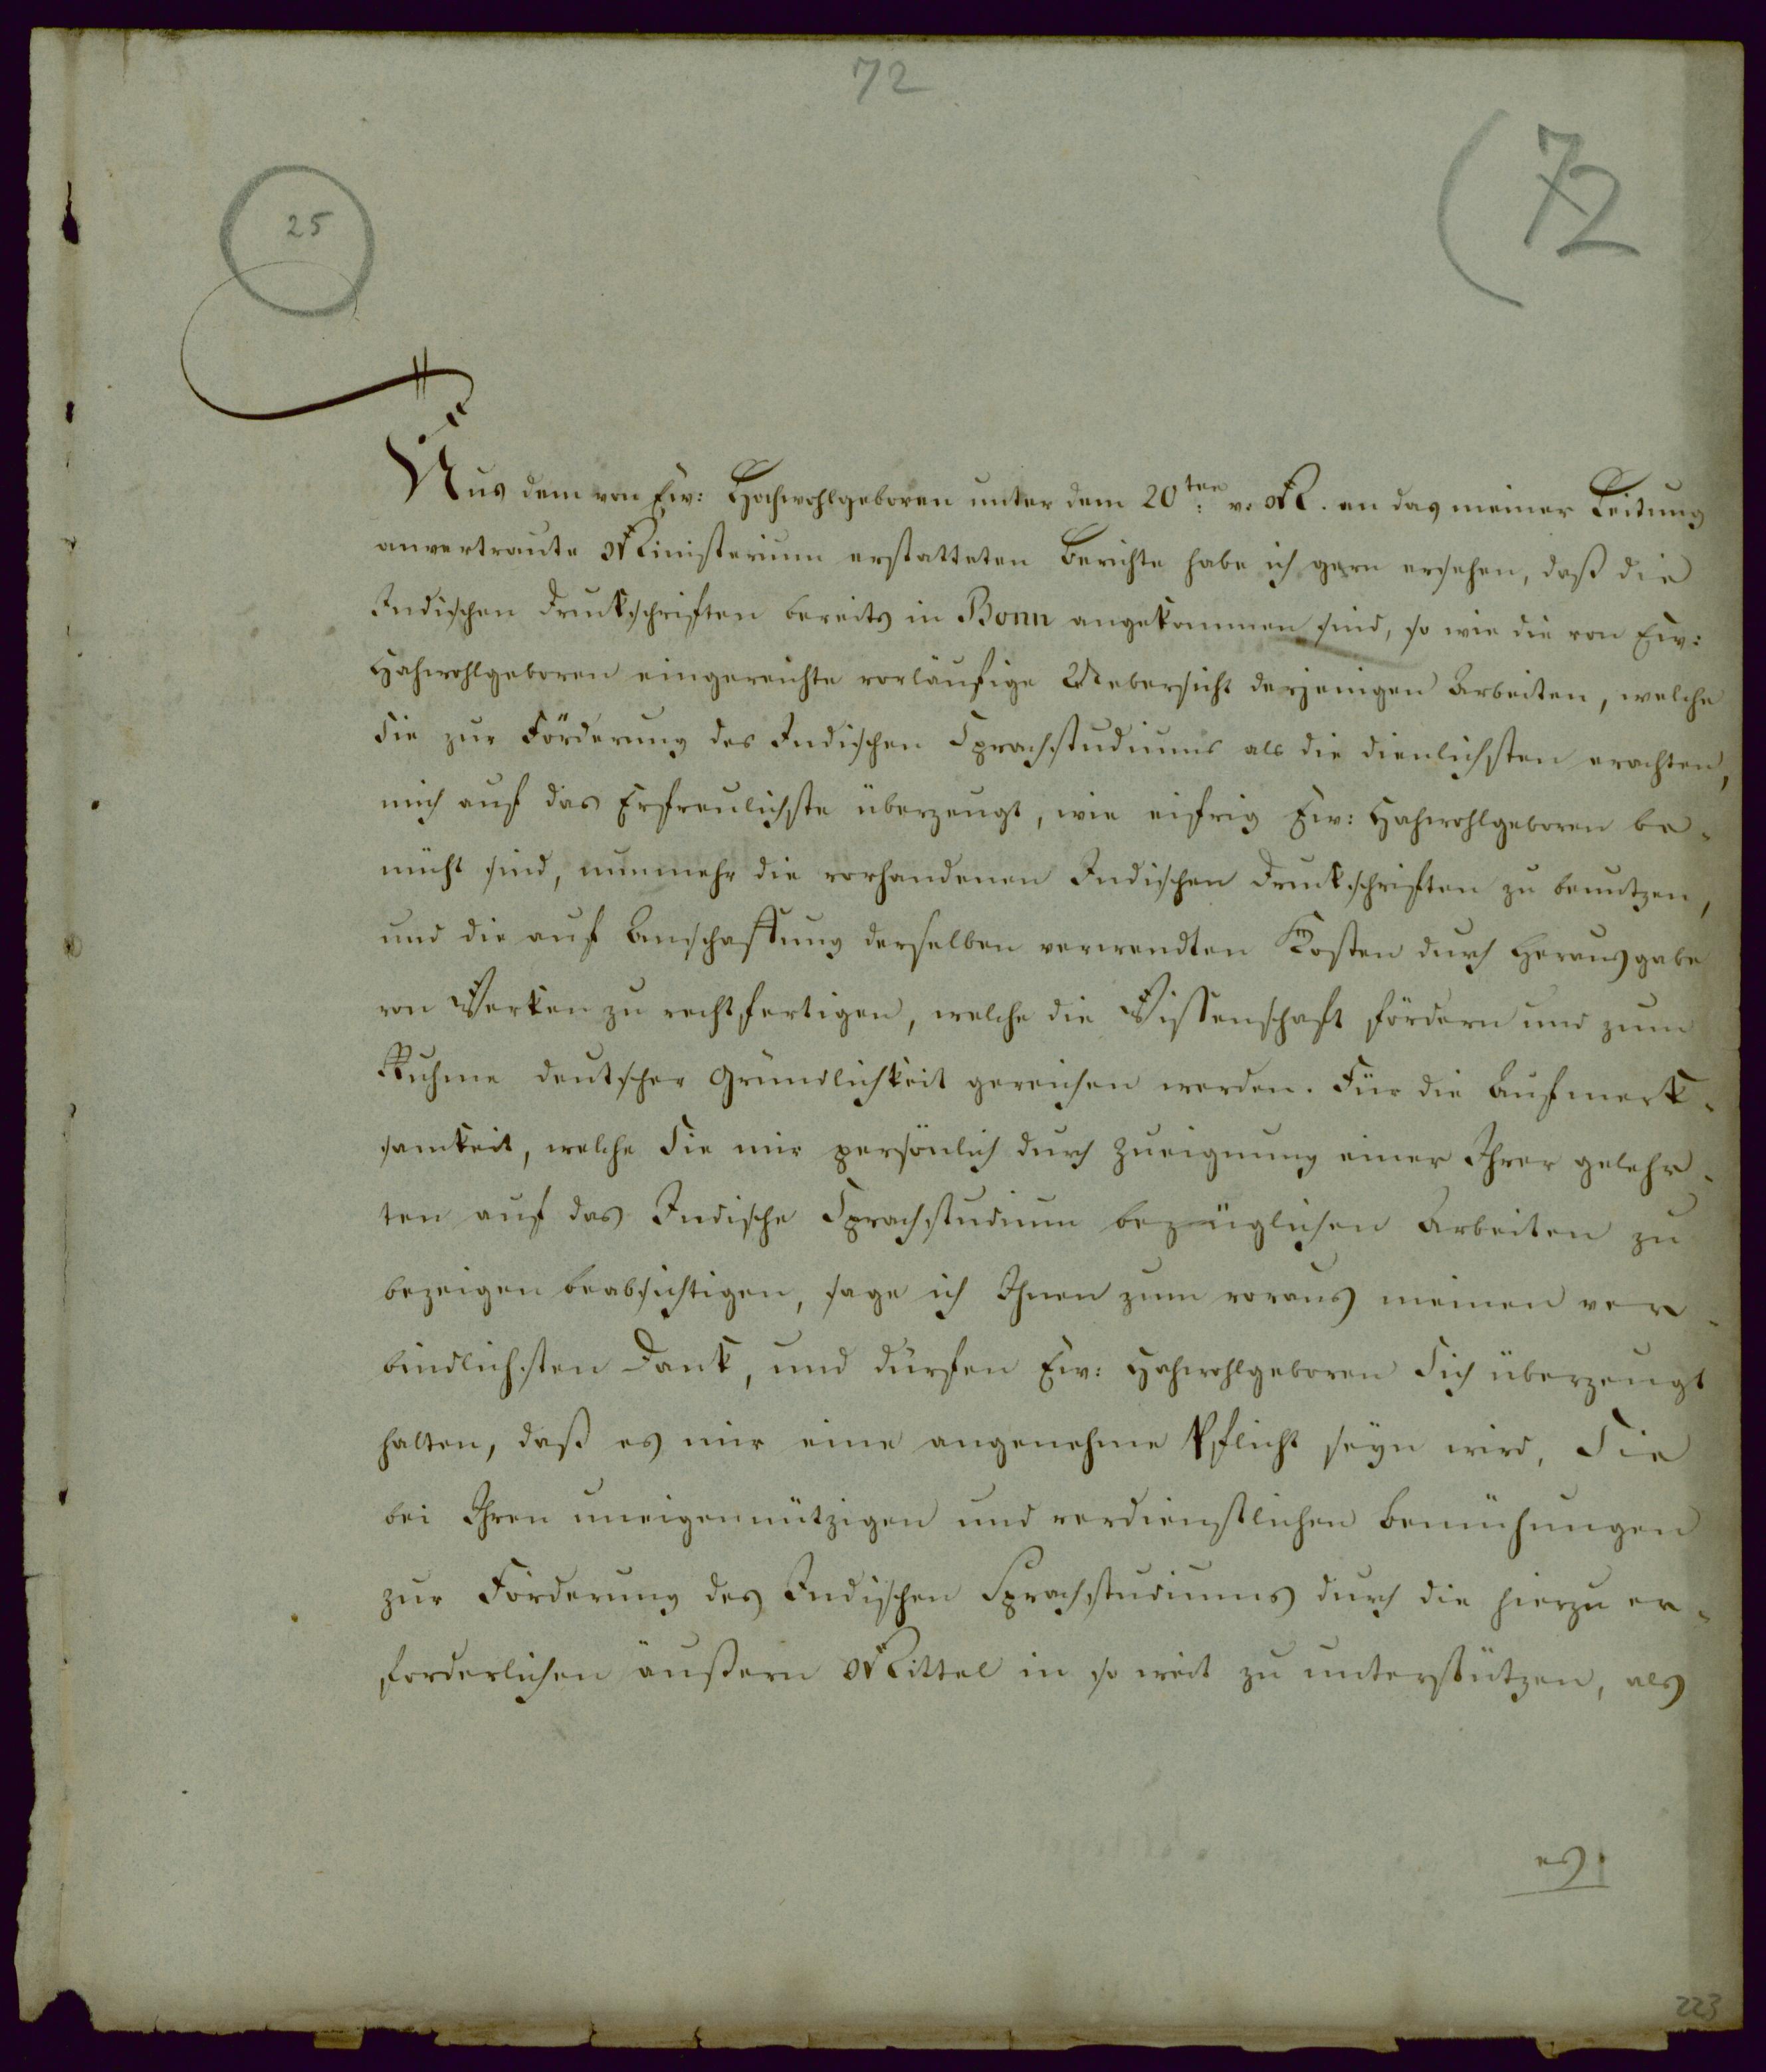 72
(72
25
Aus dem von Ew: Hochwohlgeboren unter dem 20ten: v. M. an das meiner Leitung
anvertraute Ministerium erstatteten Berichte habe ich gern ersehen, daß die
Indischen Druckschriften bereits in Bonn angekommen sind, so wie die von Ew:
Hochwohlgeboren eingereichte vorläufige Uebersicht derjenigen Arbeiten, welche
Sie zur Förderung des Indischen Sprachstudiums als die dienlichsten erachten,
mich auf das Erfreulichste überzeugt, wie eifrig Ew: Hochwohlgeboren be-
müht sind, nunmehr die vorhandenen Indischen Druckschriften zu benutzen,
und die auf Anschaffung derselben verwendten Kosten durch Herausgabe
von Werken zu rechtfertigen, welche die Wissenschaft fördern und zum
Ruhme deutscher Gründlichkeit gereichen werden. Für die Aufmerk-
samkeit, welche Sie mir persönlich durch Zueignung einer Ihrer gelehr-
ten auf das Indische Sprachstudium bezüglichen Arbeiten zu
bezeigen beabsichtigen, sage ich Ihnen zum voraus meinen ver-
bindlichsten Dank, und dürfen Ew: Hochwohlgeboren Sich überzeugt
halten, daß es mir eine angenehme Pflicht seyn wird, Sie
bei Ihren uneigennützigen und verdienstlichen Bemühungen
zur Förderung des Indischen Sprachstudiums durch die hierzu er-
forderlichen äußern Mittel in so weit zu unterstützen, als
es
223